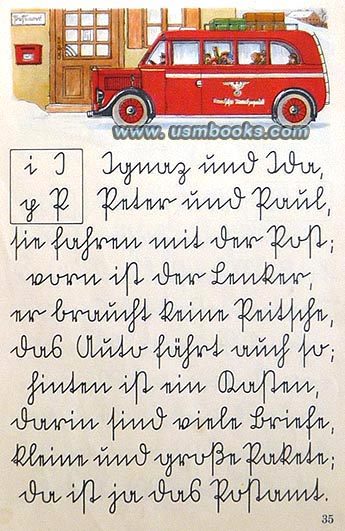 Postamt
www.usmbooks.com
i I Ignaz und Ida,
p P Peter und Paul,
sie fahren mit der Post;
vorn ist der Lenker,
er braucht keine Peitsche,
das Auto fährt auch so;
hinten ist ein Kasten,
darin sind viele Briefe,
kleine und große Pakete;
da ist ja das Postamt.
35